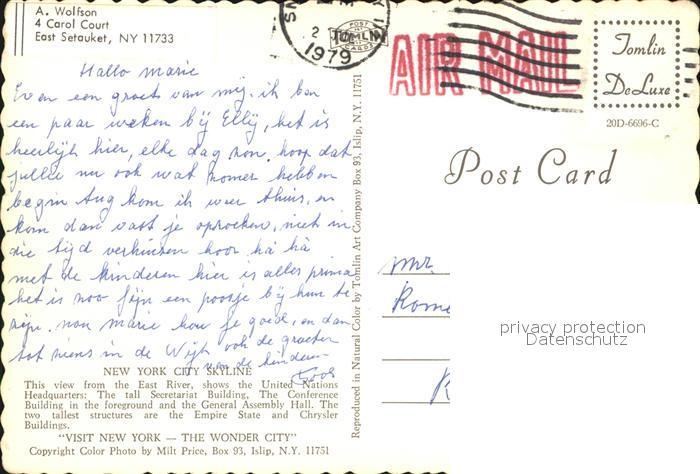 A. Wolfson
4 Carol Court
East Setauket, NY 11733
Hallo Marie
Even een groet van mij. ik ben
een paar weken bij Elly, het is
heerlijk hier, elke dag zon, hoop dat
jullie nu ook wat zomer hebben
begin Aug kom ik weer thuis, en
kom dan vast je opzoeken, niet in
die tijd verhuizen hoor. ha ha
met de kinderen hier is alles prima
het is zoo fijn een poosje bij hun te
zijn. nou Marie hou je goed, en dan
tot ziens in de Wijk ook de groeten
van de kinderen
Coos
NEW YORK CITY SKYLINE
This view from the East River, shows the United Nations
Headquarters: The tall Secretariat Building, The Conference
Building in the foreground and the General Assembly Hall. The
two tallest structures are the Empire State and Chrysler
Buildings.
"VISIT NEW YORK — THE WONDER CITY"
Copyright Color Photo by Milt Price, Box 93, Islip, N.Y. 11751
Reproduced in Natural Color by Tomlin Art Company Box 93, Islip, N.Y. 11751
POST
TOMLIN
CARDS
2
1979
AIR MAIL
Tomlin
DeLuxe
20D-6696-C
Post Card
Mr.
privacy protection
Datenschutz